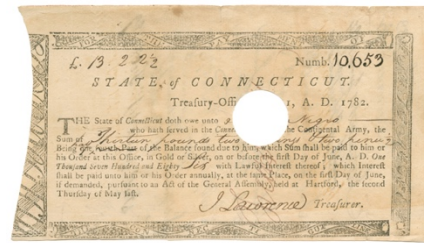 £. 13 . 2 . 2½ Numb. 10,653
STATE of CONNECTICUT.
Treasury-Offi 1, A. D. 1782.
THE State of Connecticut doth owe unto Negro
who hath served in the Connec Continental Army, the
Sum of Thirteen pounds two
Being the Fourth Part of the Balance found due to him, which Sum shall be paid to him or
his Order at this Office, in Gold or Silver, on or before the first Day of June, A. D. One
Thousand Seven Hundred and Eighty Six with Lawful Interest thereof; which Interest
shall be paid unto him or Order annually, at the same Place, on the first Day of June,
if demanded, pursuant to an Act of the General Assembly, held at Hartford, the second
Thursday of May last.
J Lawrence Treasurer.